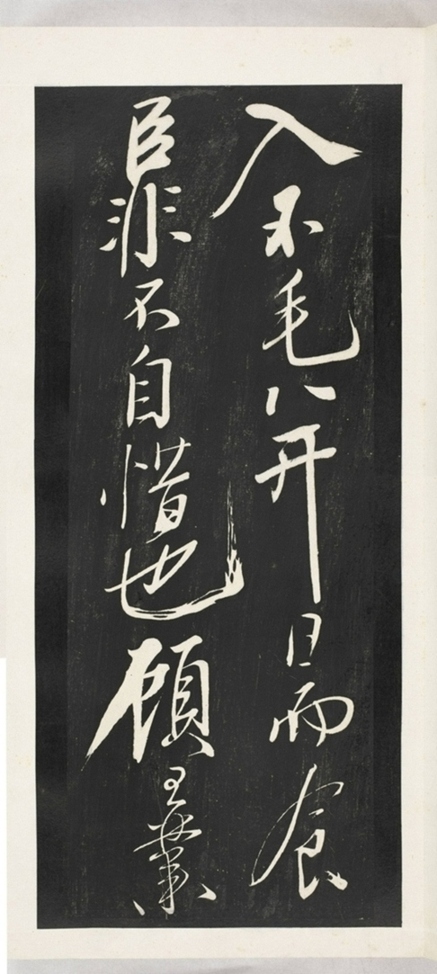 入不毛并日而食
臣非不自惜也顧王業